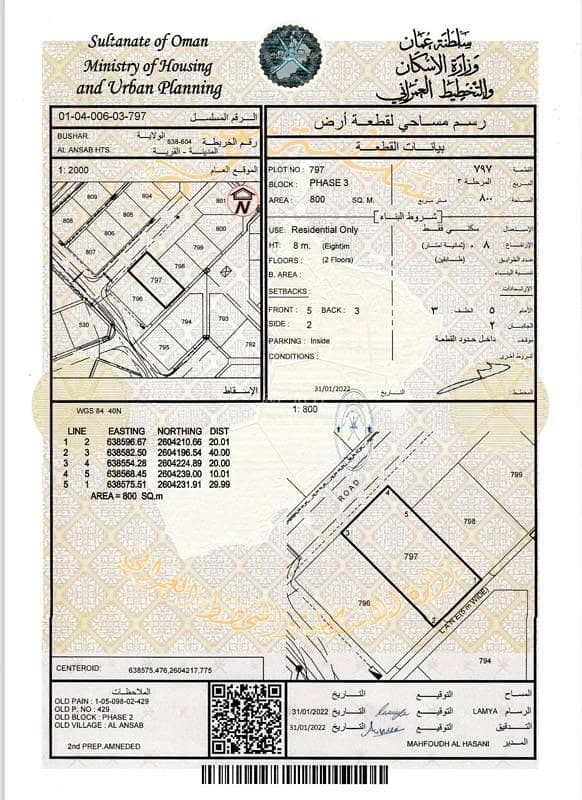 Sultanate of Oman
Ministry of Housing
and Urban Planning
سلطنة عمان
وزارة الإسكان
والتخطيط العمراني
01-04-006-03-797 الرقم المسلسل
BUSHAR الولاية
AL ANSAB HTS. المدينة - القرية
638-604 رقم الخريطة
1: 2000 الموقع العام
رسم مساحي لقطعة أرض
بيانات القطعة
PLOT NO : 797 ٧٩٧ القطعة
BLOCK : PHASE 3 المرحلة ٣ المربع
AREA : 800 SQ. M. متر مربع ٨٠٠ المساحة
شروط البناء
USE: Residential Only سكني فقط الإستعمال
HT: 8 m. (Eight)m ٨ م. (ثمانية امتار) الإرتفاع
FLOORS : (2 Floors) (طابقين) عدد الطوابق
B. AREA : نسبة البناء
SETBACKS : الإرتدادات
FRONT : 5 BACK : 3 ٣ الخلف ٥ الأمام
SIDE : 2 ٢ الجانبان
PARKING : Inside داخل حدود القطعة موقف
CONDITIONS : شروط أخرى
31/01/2022 التاريخ المخطط
N
809
808
807
806
805
804
803
802
801
800
799
798
797
796
795
794
793
792
530
الإسقاط
WGS 84 40N
1: 800
LINE EASTING NORTHING DIST
1 2 638596.67 2604210.66 20.01
2 3 638582.50 2604196.54 40.00
3 4 638554.28 2604224.89 20.00
4 5 638568.45 2604239.00 10.01
5 1 638575.51 2604231.91 29.99
AREA = 800 SQ.m
ROAD
799
798
797
796
794
4
5
3
1
2
LANE(6m WIDE)
CENTEROID: 638575.476,2604217.775
الملاحظات
OLD PAIN : 1-05-098-02-429
OLD P. NO : 429
OLD BLOCK : PHASE 2
OLD VILLAGE : AL ANSAB
2nd PREP.AMNEDED
التاريخ التوقيع المساح
31/01/2022 التاريخ التوقيع LAMYA الرسام
31/01/2022 التاريخ التوقيع التدقيق
MAHFOUDH AL HASANI المدير